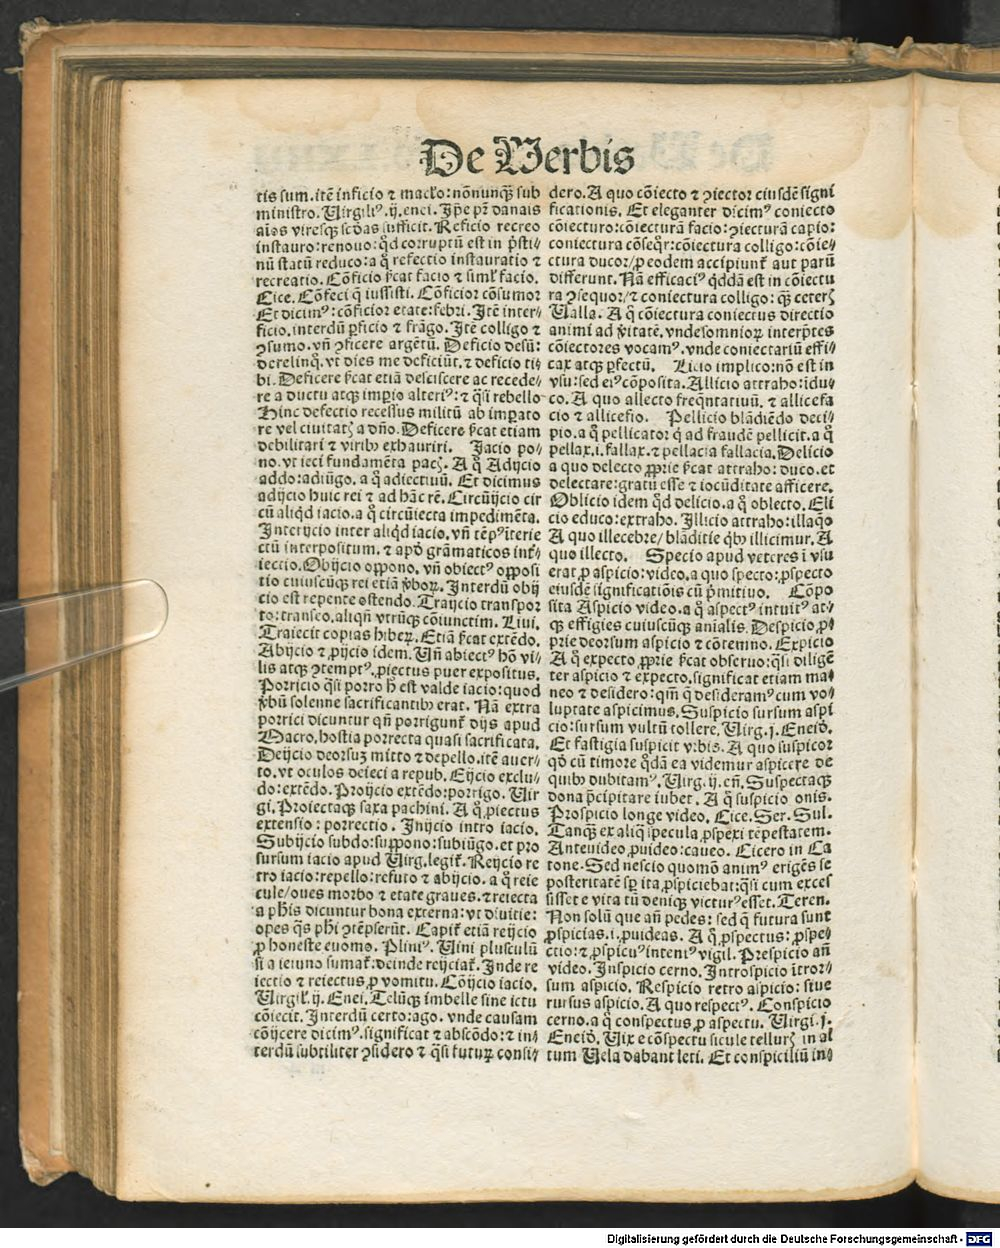 De Verbis
tis sum. itē inficio ⁊ macľo: nōnunq̄ꝫ sub
ministro. Virgiliꝰ. ij. enei. Ip̄e pr̄ danais
aīos viresqꝫ scd̄as sufficit. Reficio recreo
instauro: renouo: qd̄ corruptū est in p̄sti⸗
nū statū reduco: a q̊ refectio instauratio ⁊
recreatio. Cōficio ſ̄cat facio ⁊ siml̄ facio.
Cice. Cōfeci q̄ iussisti. Cōficior cōsumor
Et dicimꝰ: cōficior etate: febri. Itē inter⸗
ficio. interdū ꝑficio ⁊ frāgo. Itē colligo ⁊
ꝯsumo. vn̄ ꝯficere argētū. Deficio desū:
derelinq̊. vt dies me deficiūt. ⁊ deficio ti⸗
bi. Deficere ſ̄cat etiā desciscere ac recede⸗
re a ductu atqꝫ imꝑio alteriꝰ: ⁊ q̄si rebello
Hinc defectio recessus militū ab imꝑato
re vel ciuitatꝭ a dño. Deficere ſ̄cat etiam
debilitari ⁊ viribꝰ exhauriri. Jacio po⸗
no. vt ieci fundamēta pacꝭ. A q̊ Adijcio
addo: adiūgo. a q̊ adiectiuū. Et dicimus
adijcio huic rei ⁊ ad hāc rē. Circūijcio cir
cū aliqd̄ iacio. a q̊ circūiecta impedimēta.
Interijcio inter aliqd̄ iacio. vn̄ tēpꝰ īterie
ctū interpositum. ⁊ apd̄ grāmaticos int̄⸗
iectio. Obijcio oppono. vn̄ obiectꝰ opposi
tio cuiuscūqꝫ rei etiā v̄boꝝ. Interdū obij
cio est repente ostendo. Traijcio transpor
to: transeo. aliqn̄ vtrūqꝫ cōiunctim. Liui.
Traiecit copias hibeꝝ. Etiā ſ̄cat extēdo.
Abijcio ⁊ ꝓijcio idem. Vn̄ abiectꝰ hō vi⸗
lis atqꝫ ꝯtemptꝰ. ꝓiectus puer expositus.
Porricio q̄si porro h̄ est valde iacio: quod
v̄bū solenne sacrificantibꝰ erat. Nā exta
porrici dicuntur qn̄ porrigunt̄ dijs apud
Macro. hostia porrecta quasi sacrificata.
Deijcio deorsuꝫ mitto ⁊ depello. itē auer⸗
to. vt oculos deieci a repub. Eijcio exclu⸗
do: extēdo. Proijcio extēdo: porrigo. Vir
gi. Proiectaqꝫ saxa pachini. A q̊ ꝓiectus
extensio: porrectio. Inijcio intro iacio.
Subijcio subdo: suppono: subiūgo. et pro
sursum iacio apud Virg. legit̄. Reijcio re
tro iacio: repello: refuto ⁊ abijcio. a q̊ reie
cule/ oues morbo ⁊ etate graues. ⁊ reiecta
a ph̄is dicuntur bona externa: vt diuitie:
opes q̄s ph̄i ꝯtēpserūt. Capit̄ etiā reijcio
ꝓ honeste euomo. Pliniꝰ. Vini plusculū
si a ieiuno sumat̄: deinde reijciat̄. Inde re
iectio ⁊ reiectus ꝓ vomitu. Cōijcio iacio.
Virgil̄. ij. Enei. Telūqꝫ imbelle sine ictu
cōiecit. Interdū certo: ago. vnde causam
cōijcere dicimꝰ. significat ⁊ abscōdo: ⁊ in⸗
terdū subtiliter ꝯsidero ⁊ q̄si futuꝝ consi⸗
dero. A quo cōiecto ⁊ ꝯiector eiusdē signi
ficationis. Et eleganter dicimꝰ coniecto
cōiecturo: cōiecturā facio: ꝯiecturā capio:
coniectura cōseq̄r: cōiectura colligo: cōie⸗
ctura ducor/ ꝓ eodem accipiunt̄ aut parū
differunt. Nā efficaciꝰ qd̄dā est in cōiectu
ra ꝯsequor/ ⁊ coniectura colligo: q̄ꝫ ceterꝭ
Valla. A q̊ cōiectura coniectus directio
animi ad v̄itatē. vnde somnioꝝ interp̄tes
cōiectores vocamꝰ. vnde coniectariū effi⸗
cax atqꝫ ꝑfectū. Licio implico: nō est in
vsu: sed eiꝰ cōposita. Allicio attraho: īdu⸗
co. A quo allecto freq̄ntatiuū. ⁊ allicefa
cio ⁊ allicefio. Pellicio blādiēdo deci⸗
pio. a q̊ pellicator q̄ ad fraudē pellicit. a q̊
pellax. i. fallax. ⁊ pellacia fallacia. Delicio
a quo delecto ꝓprie ſ̄cat attraho: duco. et
delectare: gratū esse ⁊ iocūditate afficere.
Oblicio idem qd̄ delicio. a q̊ oblecto. Eli
cio educo: extraho. Illicio attraho: illaq̄o
A quo illecebre/ blāditie qbꝰ illicimur. A
quo illecto. Specio apud veteres ī vsu
erat ꝓ aspicio: video. a quo specto: ꝓspecto
eiusdē significatiōis cū p̄mitiuo. Cōpo
sita Aspicio video. a q̊ aspectꝰ intuitꝰ at⸗
qꝫ effigies cuiuscūqꝫ anialis. Despicio ꝓ⸗
prie deorsum aspicio ⁊ cōtemno. Expicio
A q̊ expecto ꝓprie ſ̄cat obseruo: q̄si diligē
ter aspicio ⁊ expecto. significat etiam ma⸗
neo ⁊ desidero: qm̄ q̄ desideramꝰ cum vo⸗
luptate aspicimus. Suspicio sursum aspi
cio: sursum vultū tollere. Virg. j. Eneid̄.
Et fastigia suspicit vrbis. A quo suspicor
qd̄ cū timore qd̄ā ea videmur aspicere de
quibꝰ dubitamꝰ. Virg. ij. en̄. Suspectaqꝫ
dona p̄cipitare iubet. A q̊ suspicio onis.
Prospicio longe video. Cice. Ser. Sul.
Tanq̄ꝫ ex aliq̄ specula ꝓspexi tēpestatem.
Anteuideo ꝓuideo: caueo. Cicero in Ca
tone. Sed nescio quomō animꝰ erigēs se
posteritatē sp̄ ita ꝓspiciebat: q̄si cum exces
sisset e vita tū deniqꝫ victurꝰ esset. Teren.
Non solū que an̄ pedes: sed q̄ futura sunt
ꝓspicias. i. ꝓuideas. A q̊ ꝓspectus: ꝓspe⸗
ctio: ⁊ ꝓspicuꝰ intentꝰ vigil. Prespicio an̄
video. Inspicio cerno. Introspicio ītror⸗
sum aspicio. Respicio retro aspicio: siue
rursus aspicio. A quo respectꝰ. Conspicio
cerno. a q̊ conspectus ꝓ aspectu. Virgi. j.
Eneid̄. Vix e cōspectu sicule tellurꝭ in al
tum Vela dabant leti. Et conspiciliū in⸗
Digitalisierung gefördert durch die Deutsche Forschungsgemeinschaft - DFG